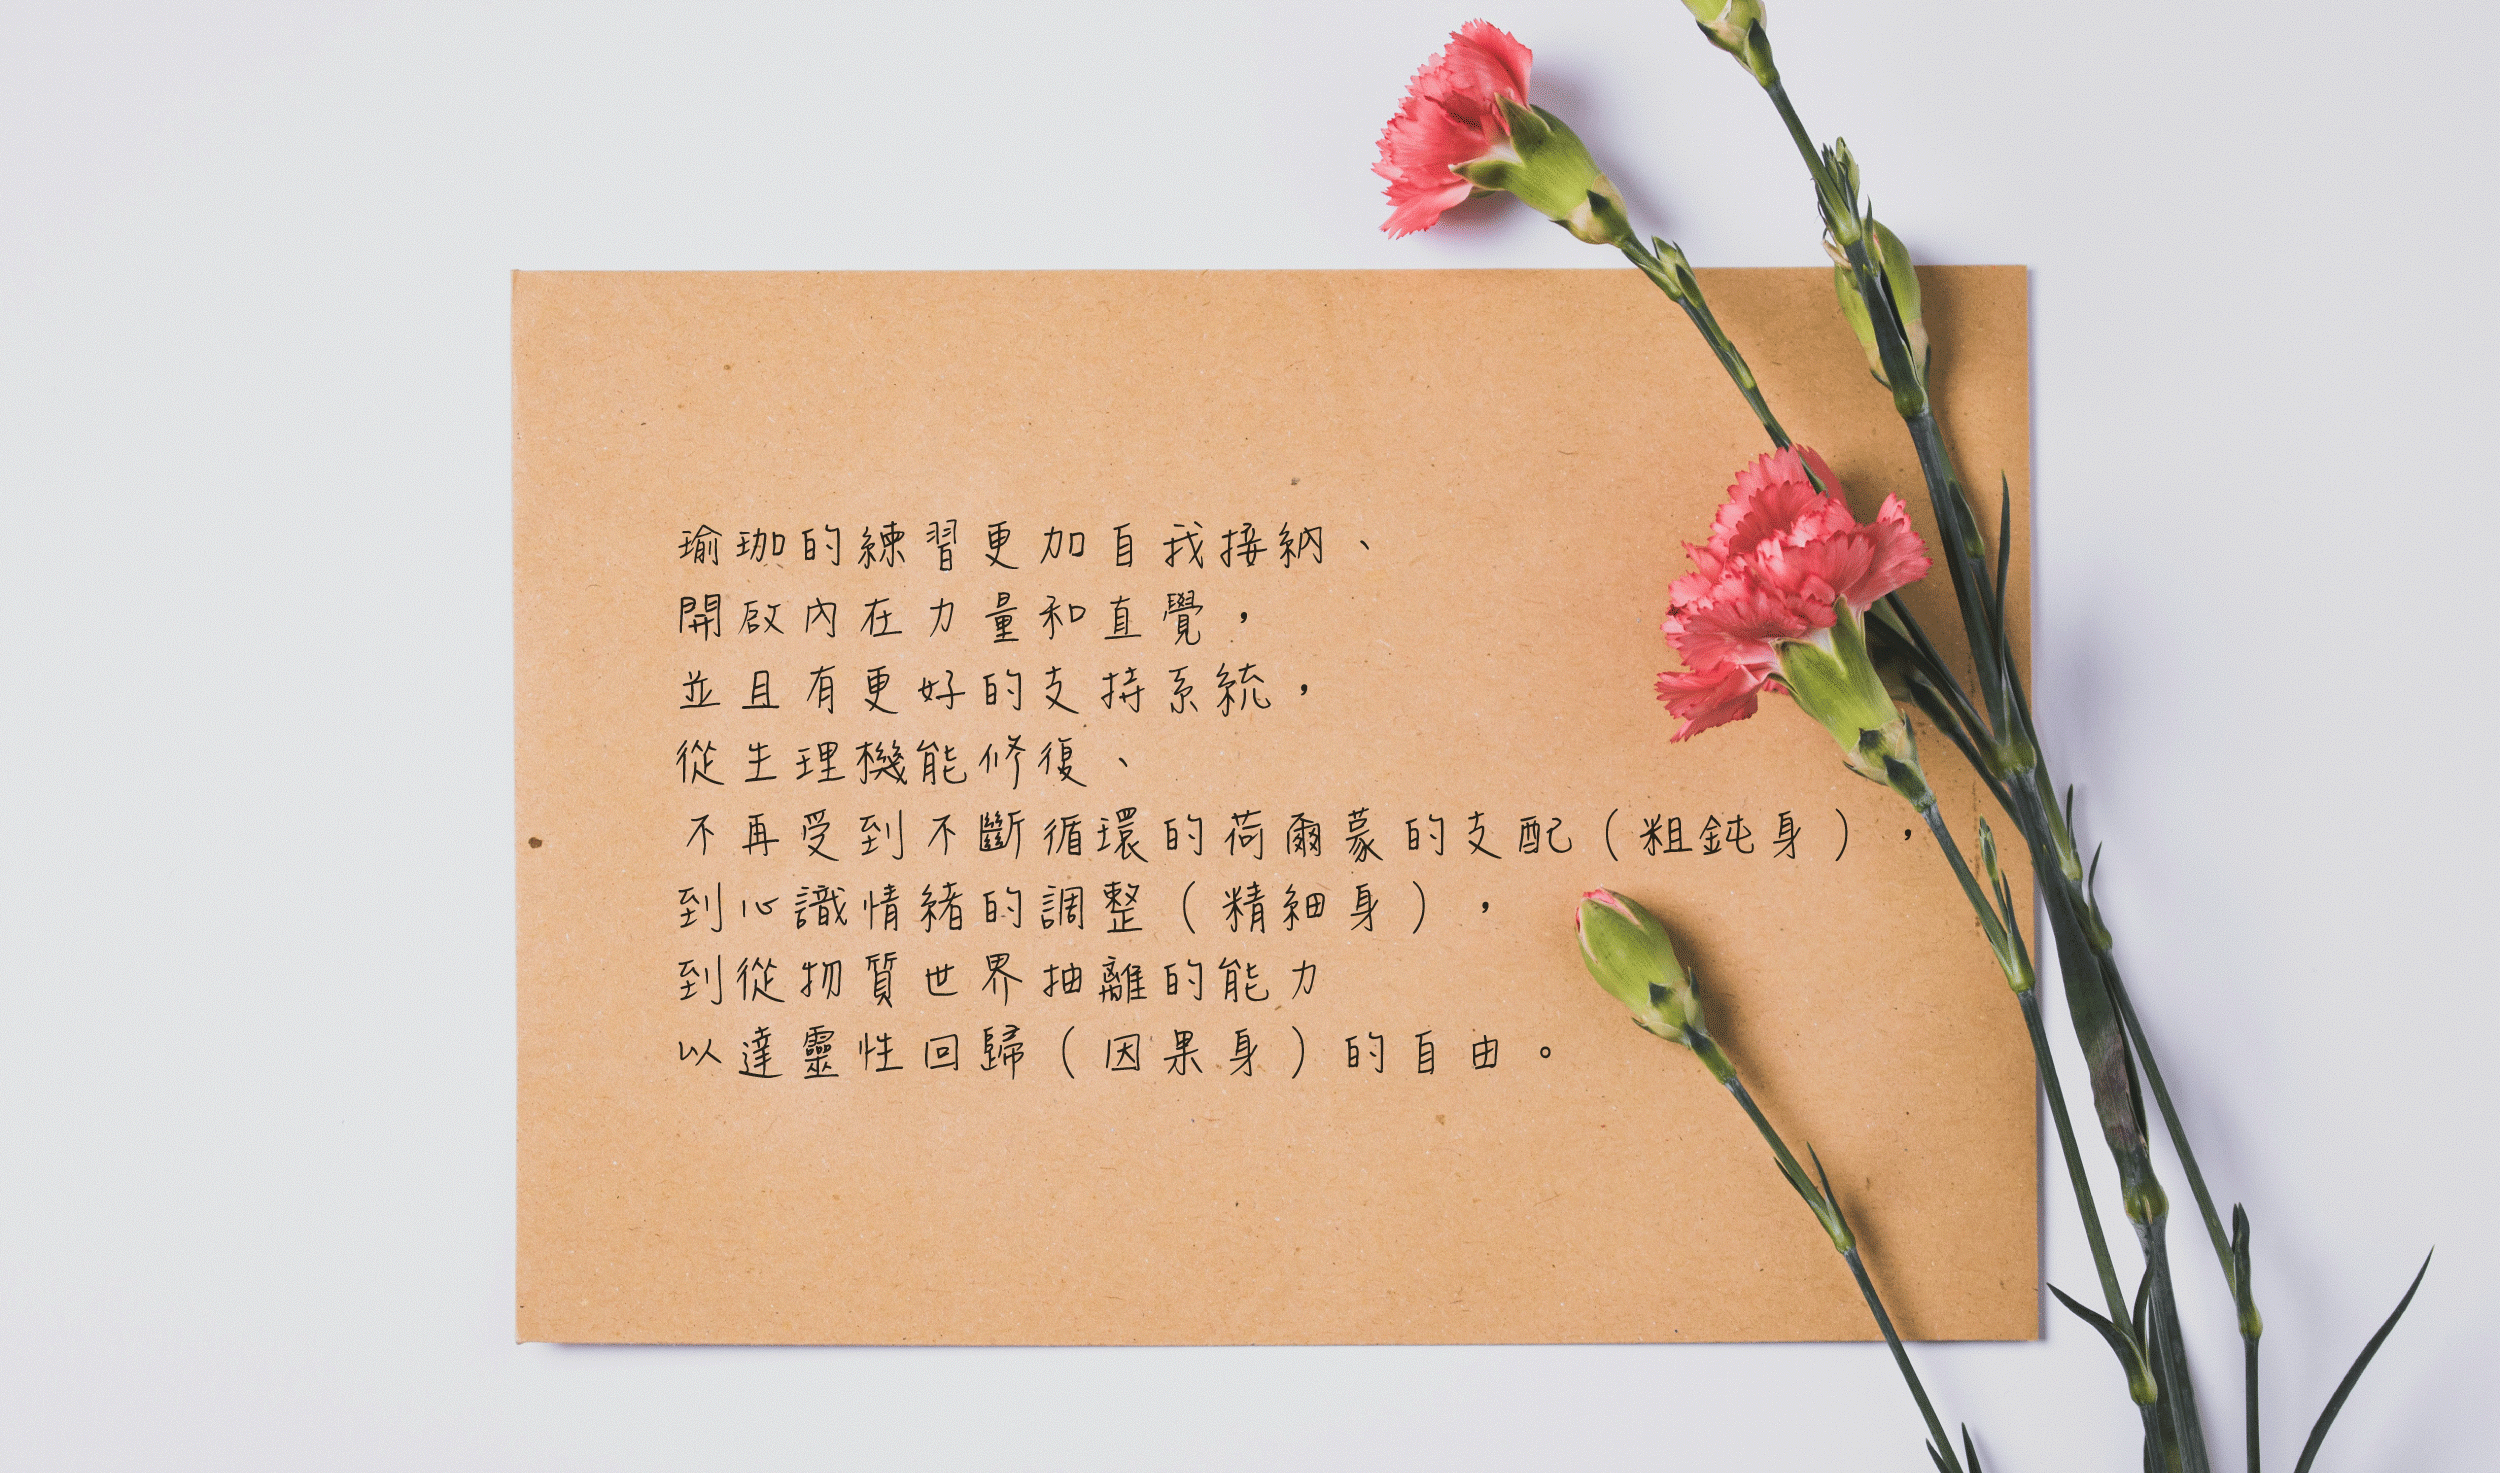 瑜珈的練習更加自我接納、
開啟內在力量和直覺，
並且有更好的支持系統，
從生理機能修復、
不再受到不斷循環的荷爾蒙的支配（粗鈍身），
到心識情緒的調整（精細身），
到從物質世界抽離的能力
以達靈性回歸（因果身）的自由。